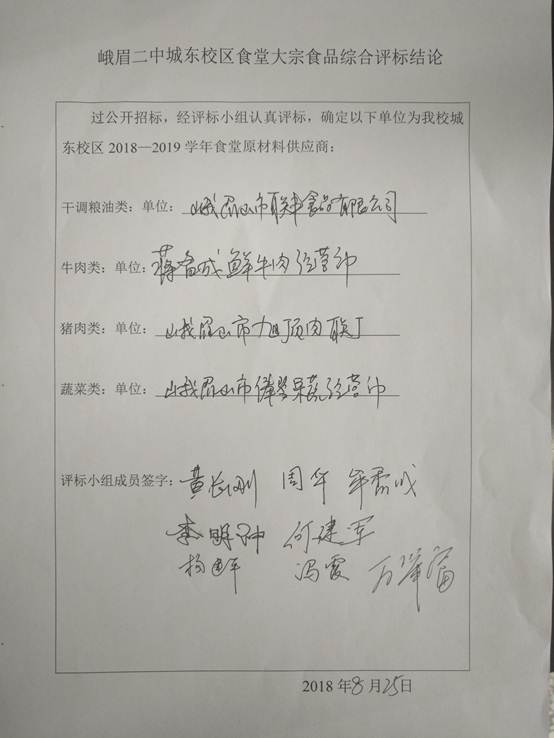 峨眉二中城东校区食堂大宗食品综合评标结论
过公开招标，经评标小组认真评标，确定以下单位为我校城
东校区 2018—2019 学年食堂原材料供应商：
干调粮油类：单位：峨眉山市联丰食品有限公司
牛肉类：单位：鲜牛肉经营部
猪肉类：单位：峨眉山市旭顶肉联厂
蔬菜类：单位：峨眉山市果蔬经营部
评标小组成员签字：黄长刚 周军
李明 何建军
杨 冯霞 万
2018 年8月25日